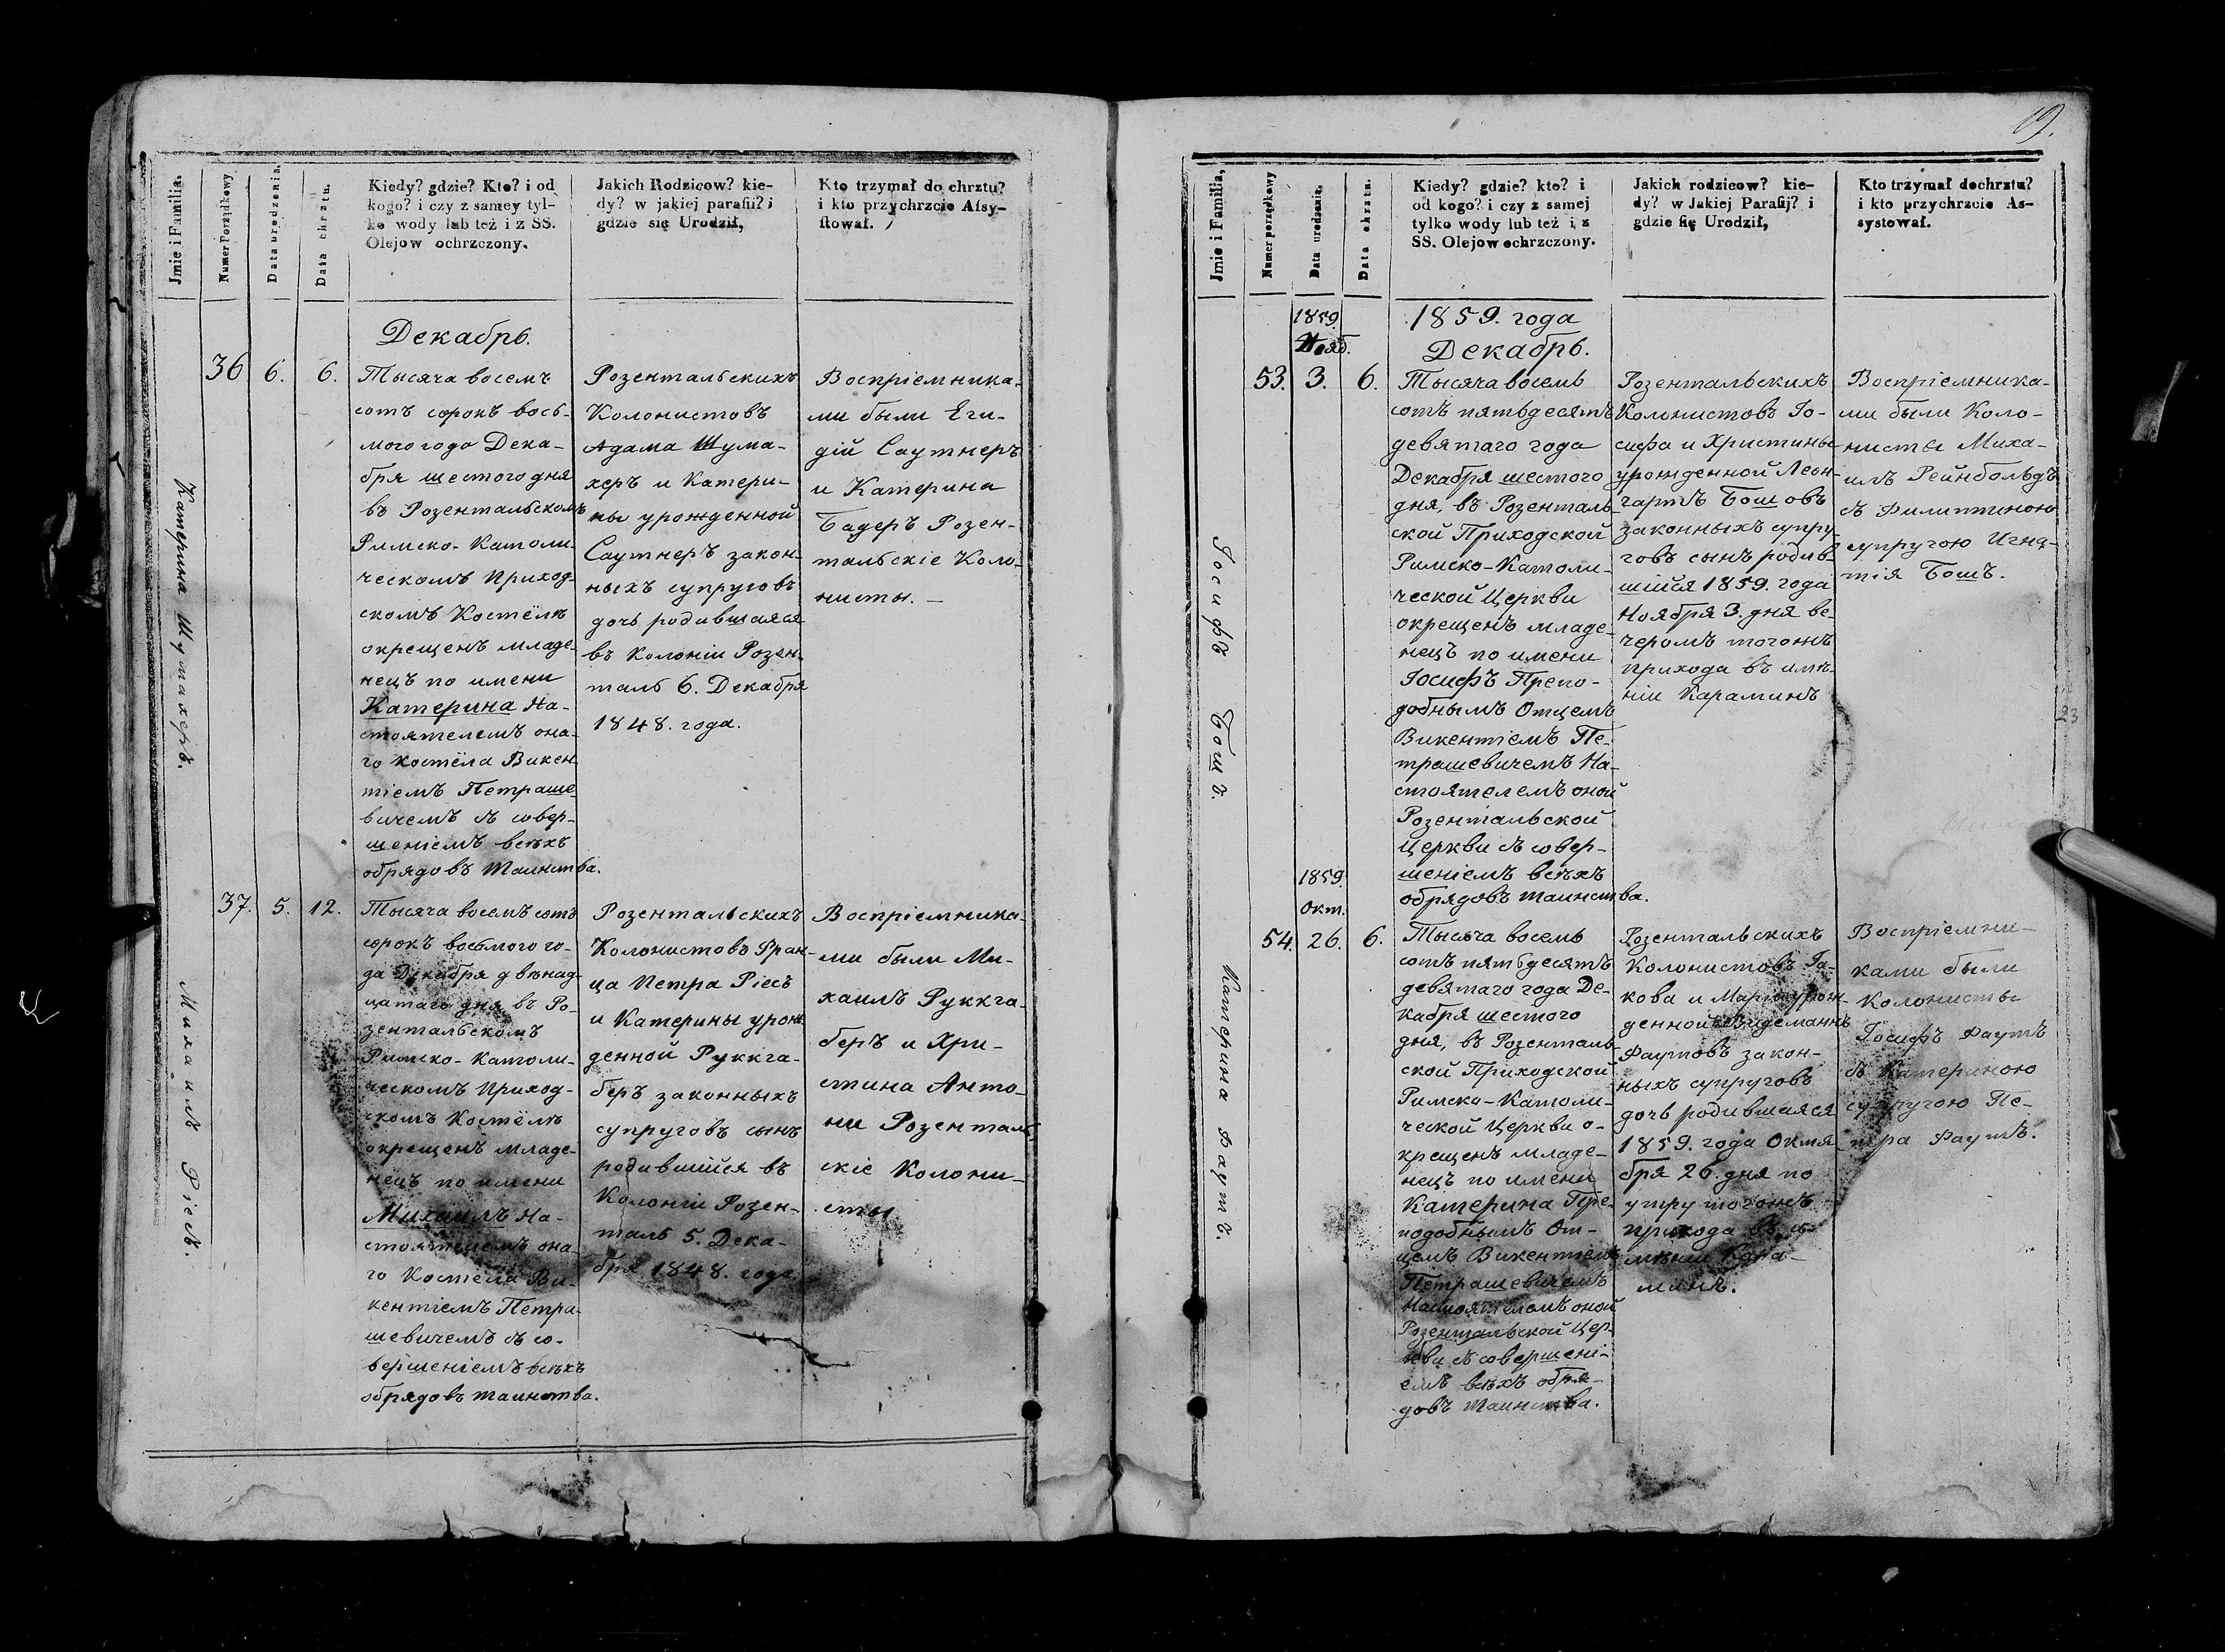 Jmie i Familia.
Numer Porządkowy
Data urodzenia.
Data chrztu.
Kiedy? gdzie? Kto? i od
kogo? i czy z samey tyl-
ko wody lub też i z SS.
Olejow ochrzczony.
Jakich Rodzicow? kie-
dy? w jakiej parafii? i
gdzie się Urodził,
Kto trzymał do chrztu?
i kto przychrzcie Afsy-
ftował.
Катерина Шумахеръ.
Декабрь.
36 6. 6.
Тысяча восемъ
сотъ сорокъ вось-
мого года Дека-
бря шестого дня
въ Розентальскомъ
Римско-Католи-
ческомъ Приход-
скомъ Костёлѣ
окрещенъ младе-
нецъ по имени
Катерина На-
стоятелемъ она-
го костёла Викен-
тіемъ Петраше-
вичемъ съ совер-
шеніемъ всѣхъ
обрядовъ таинства.
Розентальскихъ
Колонистовъ
Адама Шума-
херъ и Катери-
ны урожденной
Саутнеръ закон-
ныхъ супруговъ
дочь родившаяся
въ Колоніи Розен-
таль 6. Декабря
1848. года.
Воспріемника-
ми были Еги-
дій Саутнеръ
и Катерина
Бадеръ Розен-
тальскіе Коло-
нисты. —
Михаилъ Ріесъ.
37. 5. 12.
Тысяча восемъ сотъ
сорокъ восьмого го-
да Декабря двѣнад-
цатаго дня въ Ро-
зентальскомъ
Римско-Католи-
ческомъ Приход-
скомъ Костёлѣ
окрещенъ младе-
нецъ по имени
Михаилъ На-
стоятелемъ она-
го Костёла Ви-
кентіемъ Петра-
шевичемъ съ со-
вершеніемъ всѣхъ
обрядовъ таинства.
Розентальскихъ
Колонистовъ Фран-
ца Петра Ріесъ
и Катерины урож-
денной Руккга-
беръ законныхъ
супруговъ сынъ
родившійся въ
Колоніи Розен-
таль 5. Дека-
бря 1848. года.
Воспріемника-
ми были Ми-
хаилъ Руккга-
беръ и Хри-
стина Анто-
ни Розенталь-
скіе Колони-
сты
19.
Jmie i Familia,
Numer porządkowy
Data urodzenia.
Data chrztu.
Kiedy? gdzie? kto? i
od kogo? i czy z samej
tylko wody lub też i z
SS. Olejow ochrzczony.
Jakich rodzicow? kie-
dy? w Jakiej Parafij? i
gdzie fię Urodził,
Kto trzymał dochrztu?
i kto przychrzcie As-
systował.
Іосифъ Бошъ.
1859.
Нояб.
1859. года
Декабрь.
53. 3. 6.
Тысяча восемь
сотъ пятьдесятъ
девятаго года
Декабря шестого
дня, въ Розенталь-
ской Приходской
Римско-Католи-
ческой Церкви
окрещенъ младе-
нецъ по имени
Іосифъ Препо-
добнымъ Отцемъ
Викентіемъ Пе-
трашевичемъ На-
стоятелемъ оной
Розентальской
Церкви съ совер-
шеніемъ всѣхъ
обрядовъ таинства.
Розентальскихъ
Колонистовъ Іо-
сифа и Христины
урожденной Леон-
гартъ Бошовъ
законныхъ супру-
говъ сынъ родив-
шійся 1859. года
Ноября 3. дня ве-
черомъ тогожъ
прихода въ имѣ-
ніи Караминъ
Воспріемника-
ми были Коло-
нисты Миха-
илъ Рейнбольдъ
съ Филиппиною
супругою Игна-
тія Бошъ.
23
Катерина Фаутъ.
1859.
Окт.
54. 26. 6.
Тысяча восемь
сотъ пятьдесятъ
девятаго года Де-
кабря шестого
дня, въ Розенталь-
ской Приходской
Римско-Католи-
ческой Церкви о-
крещенъ младе-
нецъ по имени
Катерина Пре-
подобнымъ От-
цемъ Викентіемъ
Петрашевичемъ
Настоятелемъ оной
Розентальской Цер-
кви съ совершені-
емъ всѣхъ обря-
довъ таинства.
Розентальскихъ
Колонистовъ Іа-
кова и Маріи урож-
денной Видеманнъ
Фаутовъ закон-
ныхъ супруговъ
дочь родившаяся
1859. года Октя-
бря 26. дня по
утру тогожъ
прихода въ и-
мѣніи Кара-
минъ.
Воспріемни-
ками были
Колонисты
Іосифъ Фаутъ
съ Катериною
супругою Пе-
тра Фаутъ.